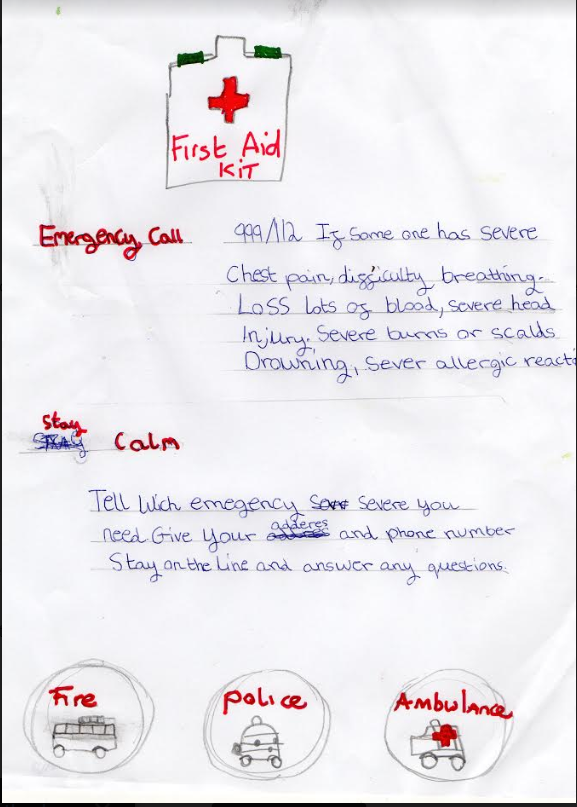 First Aid
KiT
Emergency Call
999/112 If Some one has severe
Chest pain, difficulty breathing.
Loss lots of blood, severe head
Injury. Severe burns or scalds
Drowning, Sever allergic reacti
Stay
Calm
Tell Wich emegency severe you
adderes
need Give your and phone number
Stay on the Line and answer any questions.
Fire
police
Ambulance